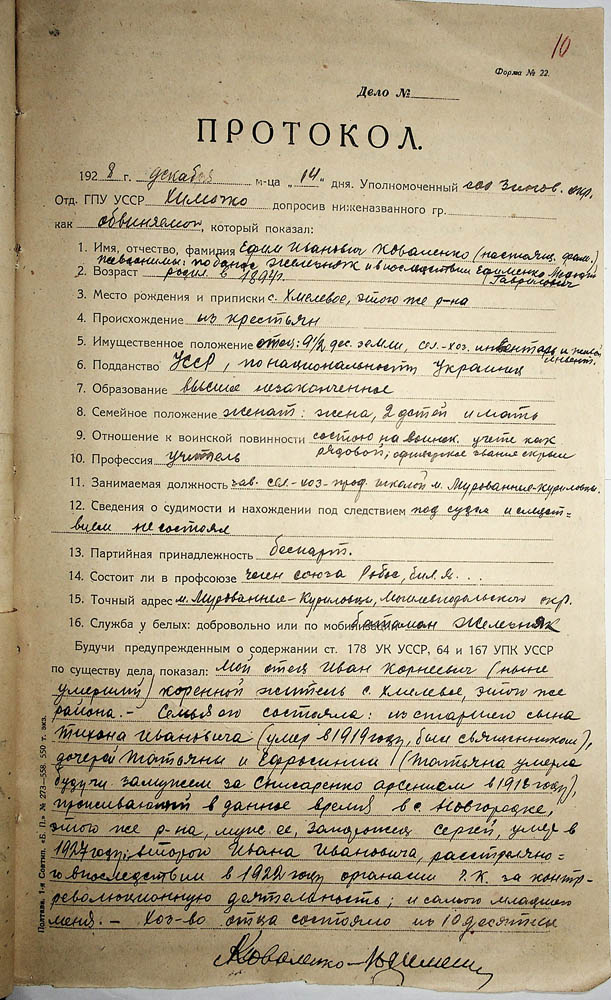 10
Форма № 22.
Дело №
ПРОТОКОЛ.
1928 г. декабря м-ца „14“ дня. Уполномоченный Зинов. окр.
Отд. ГПУ УССР Химочко допросив ниженазванного гр.
как обвиняемого, который показал:
1. Имя, отчество, фамилия Ефим Иванович Коваленко (настоящ. фам.)
псевдонимы: по банде Железняк и впоследствии Ефименко
Гаврилович
2. Возраст родил. в 1894 г.
3. Место рождения и приписки с. Хмелевое, этого же р-на
4. Происхождение из крестьян
5. Имущественное положение отец: 9½ дес. земли, сел.-хоз. инвентарь и живой
инвент.
6. Подданство УССР, по национальности Украинец
7. Образование высшее незаконченное
8. Семейное положение женат: жена, 2 детей и мать
9. Отношение к воинской повинности состою на воинск. учете как
рядовой; офицерское звание скрыл
10. Профессия учитель
11. Занимаемая должность зав. сел-хоз-проф. школой м. Мурованные-Куриловцы.
12. Сведения о судимости и нахождении под следствием под судом и следст-
вием не состоял
13. Партийная принадлежность беспарт.
14. Состоит ли в профсоюзе член союза Рабос,
15. Точный адрес м. Мурованные-Куриловцы, окр.
16. Служба у белых: добровольно или по мобилизации атаман Железняк
Будучи предупрежденным о содержании ст. 178 УК УССР, 64 и 167 УПК УССР
по существу дела показал: Мой отец Иван Корнеевич (ныне
умерший) коренной житель с. Хмелевое, этого же
района. – Семья его состояла: из старшего сына
Тихона Ивановича (умер в 1919 году, был священником),
дочерей Татьяны и Ефросинии (Татьяна умерла
будучи замужем за Слисаренко Арсением в 1918 году),
в данное время в с. Новгородке,
этого же р-на, муж ее, Запорожец Сергей, умер в
1927 году; второго Ивана Ивановича, расстрелянно-
го впоследствии в 1922 году органами Ч.К. за контр-
революционную деятельность; и самого младшего
меня. – Хоз-во отца состояло из 10 десятин
Полтава. 1-я Советтип. «Б. П.» № 273—558. 550 т. экз.